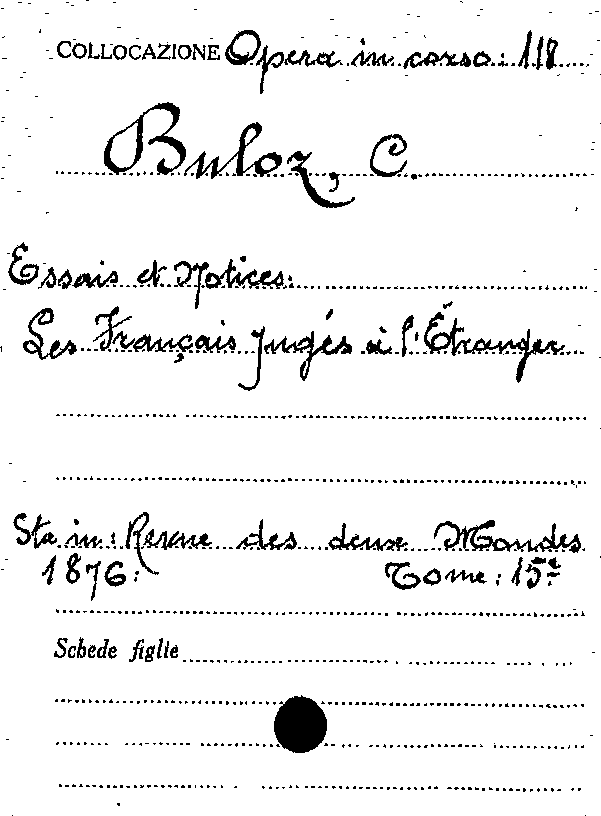 COLLOCAZIONE Opera in corso: 118
Buloz, C.
Essais et Notices:
Les Français jugés à l'Étranger
Sta in: Revue des deux Mondes
1876: Tome: 15e
Schede figlie